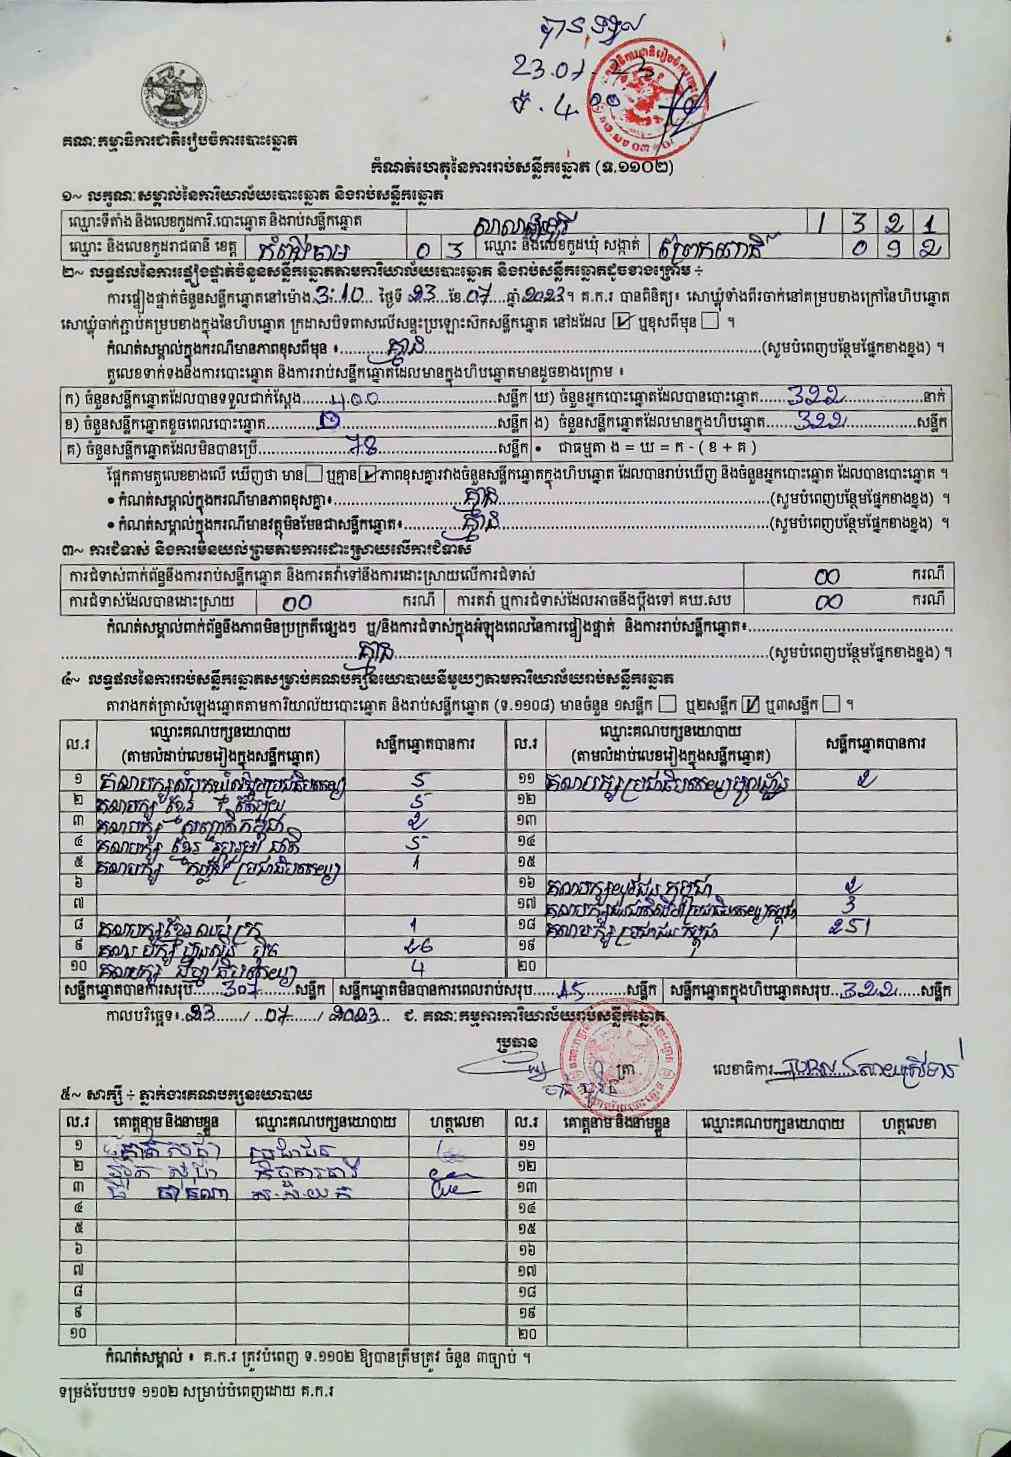 បានទទួល
23.07.23
ម៉.4.00
គណៈកម្មាធិការជាតិរៀបចំការបោះឆ្នោត
កំណត់ហេតុនៃការរាប់សន្លឹកឆ្នោត (ទ.១១០២)
១~ លក្ខណៈសម្គាល់នៃការិយាល័យបោះឆ្នោត និងរាប់សន្លឹកឆ្នោត
ឈ្មោះទីតាំង និងលេខកូដការិ.បោះឆ្នោត និងរាប់សន្លឹកឆ្នោត 1 3 2 1
ឈ្មោះ និងលេខកូដរាជធានី ខេត្ត កំពង់ចាម 0 3 ឈ្មោះ និងលេខកូដឃុំ សង្កាត់ 0 9 2
២~ លទ្ធផលនៃការផ្ទៀងផ្ទាត់ចំនួនសន្លឹកឆ្នោតតាមការិយាល័យបោះឆ្នោត និងរាប់សន្លឹកឆ្នោតដូចខាងក្រោម ៖
ការផ្ទៀងផ្ទាត់ចំនួនសន្លឹកឆ្នោតនៅម៉ោង 3:10 ថ្ងៃទី 23 ខែ 07 ឆ្នាំ 2023 ។ គ.ក.រ បានពិនិត្យ៖ សោឃ្លុំទាំងពីរចាក់នៅគម្របខាងក្រៅនៃហិបឆ្នោត
សោឃ្លុំចាក់ភ្ជាប់គម្របខាងក្នុងនៃហិបឆ្នោត ក្រដាសបិទពាសលើសន្ទះប្រឡោះស៊កសន្លឹកឆ្នោត នៅដដែល ☑ ឬខុសពីមុន ☐ ។
កំណត់សម្គាល់ក្នុងករណីមានភាពខុសពីមុន ៖ គ្មាន (សូមបំពេញបន្ថែមផ្នែកខាងខ្នង) ។
តួលេខទាក់ទងនឹងការបោះឆ្នោត និងការរាប់សន្លឹកឆ្នោតដែលមានក្នុងហិបឆ្នោតមានដូចខាងក្រោម ៖
ក) ចំនួនសន្លឹកឆ្នោតដែលបានទទួលជាក់ស្តែង 400 សន្លឹក ឃ) ចំនួនអ្នកបោះឆ្នោតដែលបានបោះឆ្នោត 322 នាក់
ខ) ចំនួនសន្លឹកឆ្នោតខូចពេលបោះឆ្នោត 0 សន្លឹក ង) ចំនួនសន្លឹកឆ្នោតដែលមានក្នុងហិបឆ្នោត 322 សន្លឹក
គ) ចំនួនសន្លឹកឆ្នោតដែលមិនបានប្រើ 78 សន្លឹក • ជាធម្មតា ង = ឃ = ក - ( ខ + គ )
ផ្អែកតាមតួលេខខាងលើ ឃើញថា មាន ☐ ឬគ្មាន ☑ ភាពខុសគ្នារវាងចំនួនសន្លឹកឆ្នោតក្នុងហិបឆ្នោត ដែលបានរាប់ឃើញ និងចំនួនអ្នកបោះឆ្នោត ដែលបានបោះឆ្នោត ។
• កំណត់សម្គាល់ក្នុងករណីមានភាពខុសគ្នា៖ គ្មាន (សូមបំពេញបន្ថែមផ្នែកខាងខ្នង) ។
• កំណត់សម្គាល់ក្នុងករណីមានវត្ថុមិនមែនជាសន្លឹកឆ្នោត៖ គ្មាន (សូមបំពេញបន្ថែមផ្នែកខាងខ្នង) ។
៣~ ការជំទាស់ និងការមិនយល់ព្រមតាមការដោះស្រាយលើការជំទាស់
ការជំទាស់ពាក់ព័ន្ធនឹងការរាប់សន្លឹកឆ្នោត និងការតវ៉ាទៅនឹងការដោះស្រាយលើការជំទាស់ 00 ករណី
ការជំទាស់ដែលបានដោះស្រាយ 00 ករណី ការតវ៉ា ឬការជំទាស់ដែលអាចនឹងប្តឹងទៅ គឃ.សប 00 ករណី
កំណត់សម្គាល់ពាក់ព័ន្ធនឹងភាពមិនប្រក្រតីផ្សេងៗ ឬ/និងការជំទាស់ក្នុងអំឡុងពេលនៃការផ្ទៀងផ្ទាត់ និងការរាប់សន្លឹកឆ្នោត៖
គ្មាន (សូមបំពេញបន្ថែមផ្នែកខាងខ្នង) ។
៤~ លទ្ធផលនៃការរាប់សន្លឹកឆ្នោតសម្រាប់គណបក្សនយោបាយនីមួយៗតាមការិយាល័យរាប់សន្លឹកឆ្នោត
តារាងកត់ត្រាសំឡេងឆ្នោតតាមការិយាល័យបោះឆ្នោត និងរាប់សន្លឹកឆ្នោត (ទ.១១០៨) មានចំនួន ១សន្លឹក ☐ ឬ២សន្លឹក ☑ ឬ៣សន្លឹក ☐ ។
ល.រ ឈ្មោះគណបក្សនយោបាយ (តាមលំដាប់លេខរៀងក្នុងសន្លឹកឆ្នោត) សន្លឹកឆ្នោតបានការ ល.រ ឈ្មោះគណបក្សនយោបាយ (តាមលំដាប់លេខរៀងក្នុងសន្លឹកឆ្នោត) សន្លឹកឆ្នោតបានការ
១ គណបក្សសំបុកឃ្មុំសង្គមប្រជាធិបតេយ្យ 5 ១១ គណបក្សប្រជាធិបតេយ្យមូលដ្ឋាន 2
២ គណបក្ស ខ្មែរតែមួយ 5 ១២
៣ គណបក្ស សញ្ជាតិកម្ពុជា 2 ១៣
៤ គណបក្ស ខ្មែររួបរួមជាតិ 5 ១៤
៥ គណបក្ស កម្លាំងប្រជាធិបតេយ្យ 1 ១៥
៦ ១៦ គណបក្សយុវជនកម្ពុជា 2
៧ ១៧ 3
៨ គណបក្សខ្មែរឈប់ក្រ 1 ១៨ គណបក្សប្រជាជនកម្ពុជា 251
៩ គណបក្សហ្វ៊ុនស៊ិនប៉ិច 26 ១៩
១០ គណបក្ស ធម្មាធិបតេយ្យ 4 ២០
សន្លឹកឆ្នោតបានការសរុប 307 សន្លឹក សន្លឹកឆ្នោតមិនបានការពេលរាប់សរុប 15 សន្លឹក សន្លឹកឆ្នោតក្នុងហិបឆ្នោតសរុប 322 សន្លឹក
កាលបរិច្ឆេទ៖ 23 / 07 / 2023 ជ. គណៈកម្មការការិយាល័យរាប់សន្លឹកឆ្នោត
ប្រធាន
ត្រា លេខាធិការ
៥~ សាក្សី ÷ ភ្នាក់ងារគណបក្សនយោបាយ
ល.រ គោត្តនាម និងនាមខ្លួន ឈ្មោះគណបក្សនយោបាយ ហត្ថលេខា ល.រ គោត្តនាម និងនាមខ្លួន ឈ្មោះគណបក្សនយោបាយ ហត្ថលេខា
១ ប្រជាជន ១១
២ ១២
៣ ១៣
៤ ១៤
៥ ១៥
៦ ១៦
៧ ១៧
៨ ១៨
៩ ១៩
១០ ២០
កំណត់សម្គាល់ ៖ គ.ក.រ ត្រូវបំពេញ ទ.១១០២ ឱ្យបានត្រឹមត្រូវ ចំនួន ៣ច្បាប់ ។
ទម្រង់បែបបទ ១១០២ សម្រាប់បំពេញដោយ គ.ក.រ